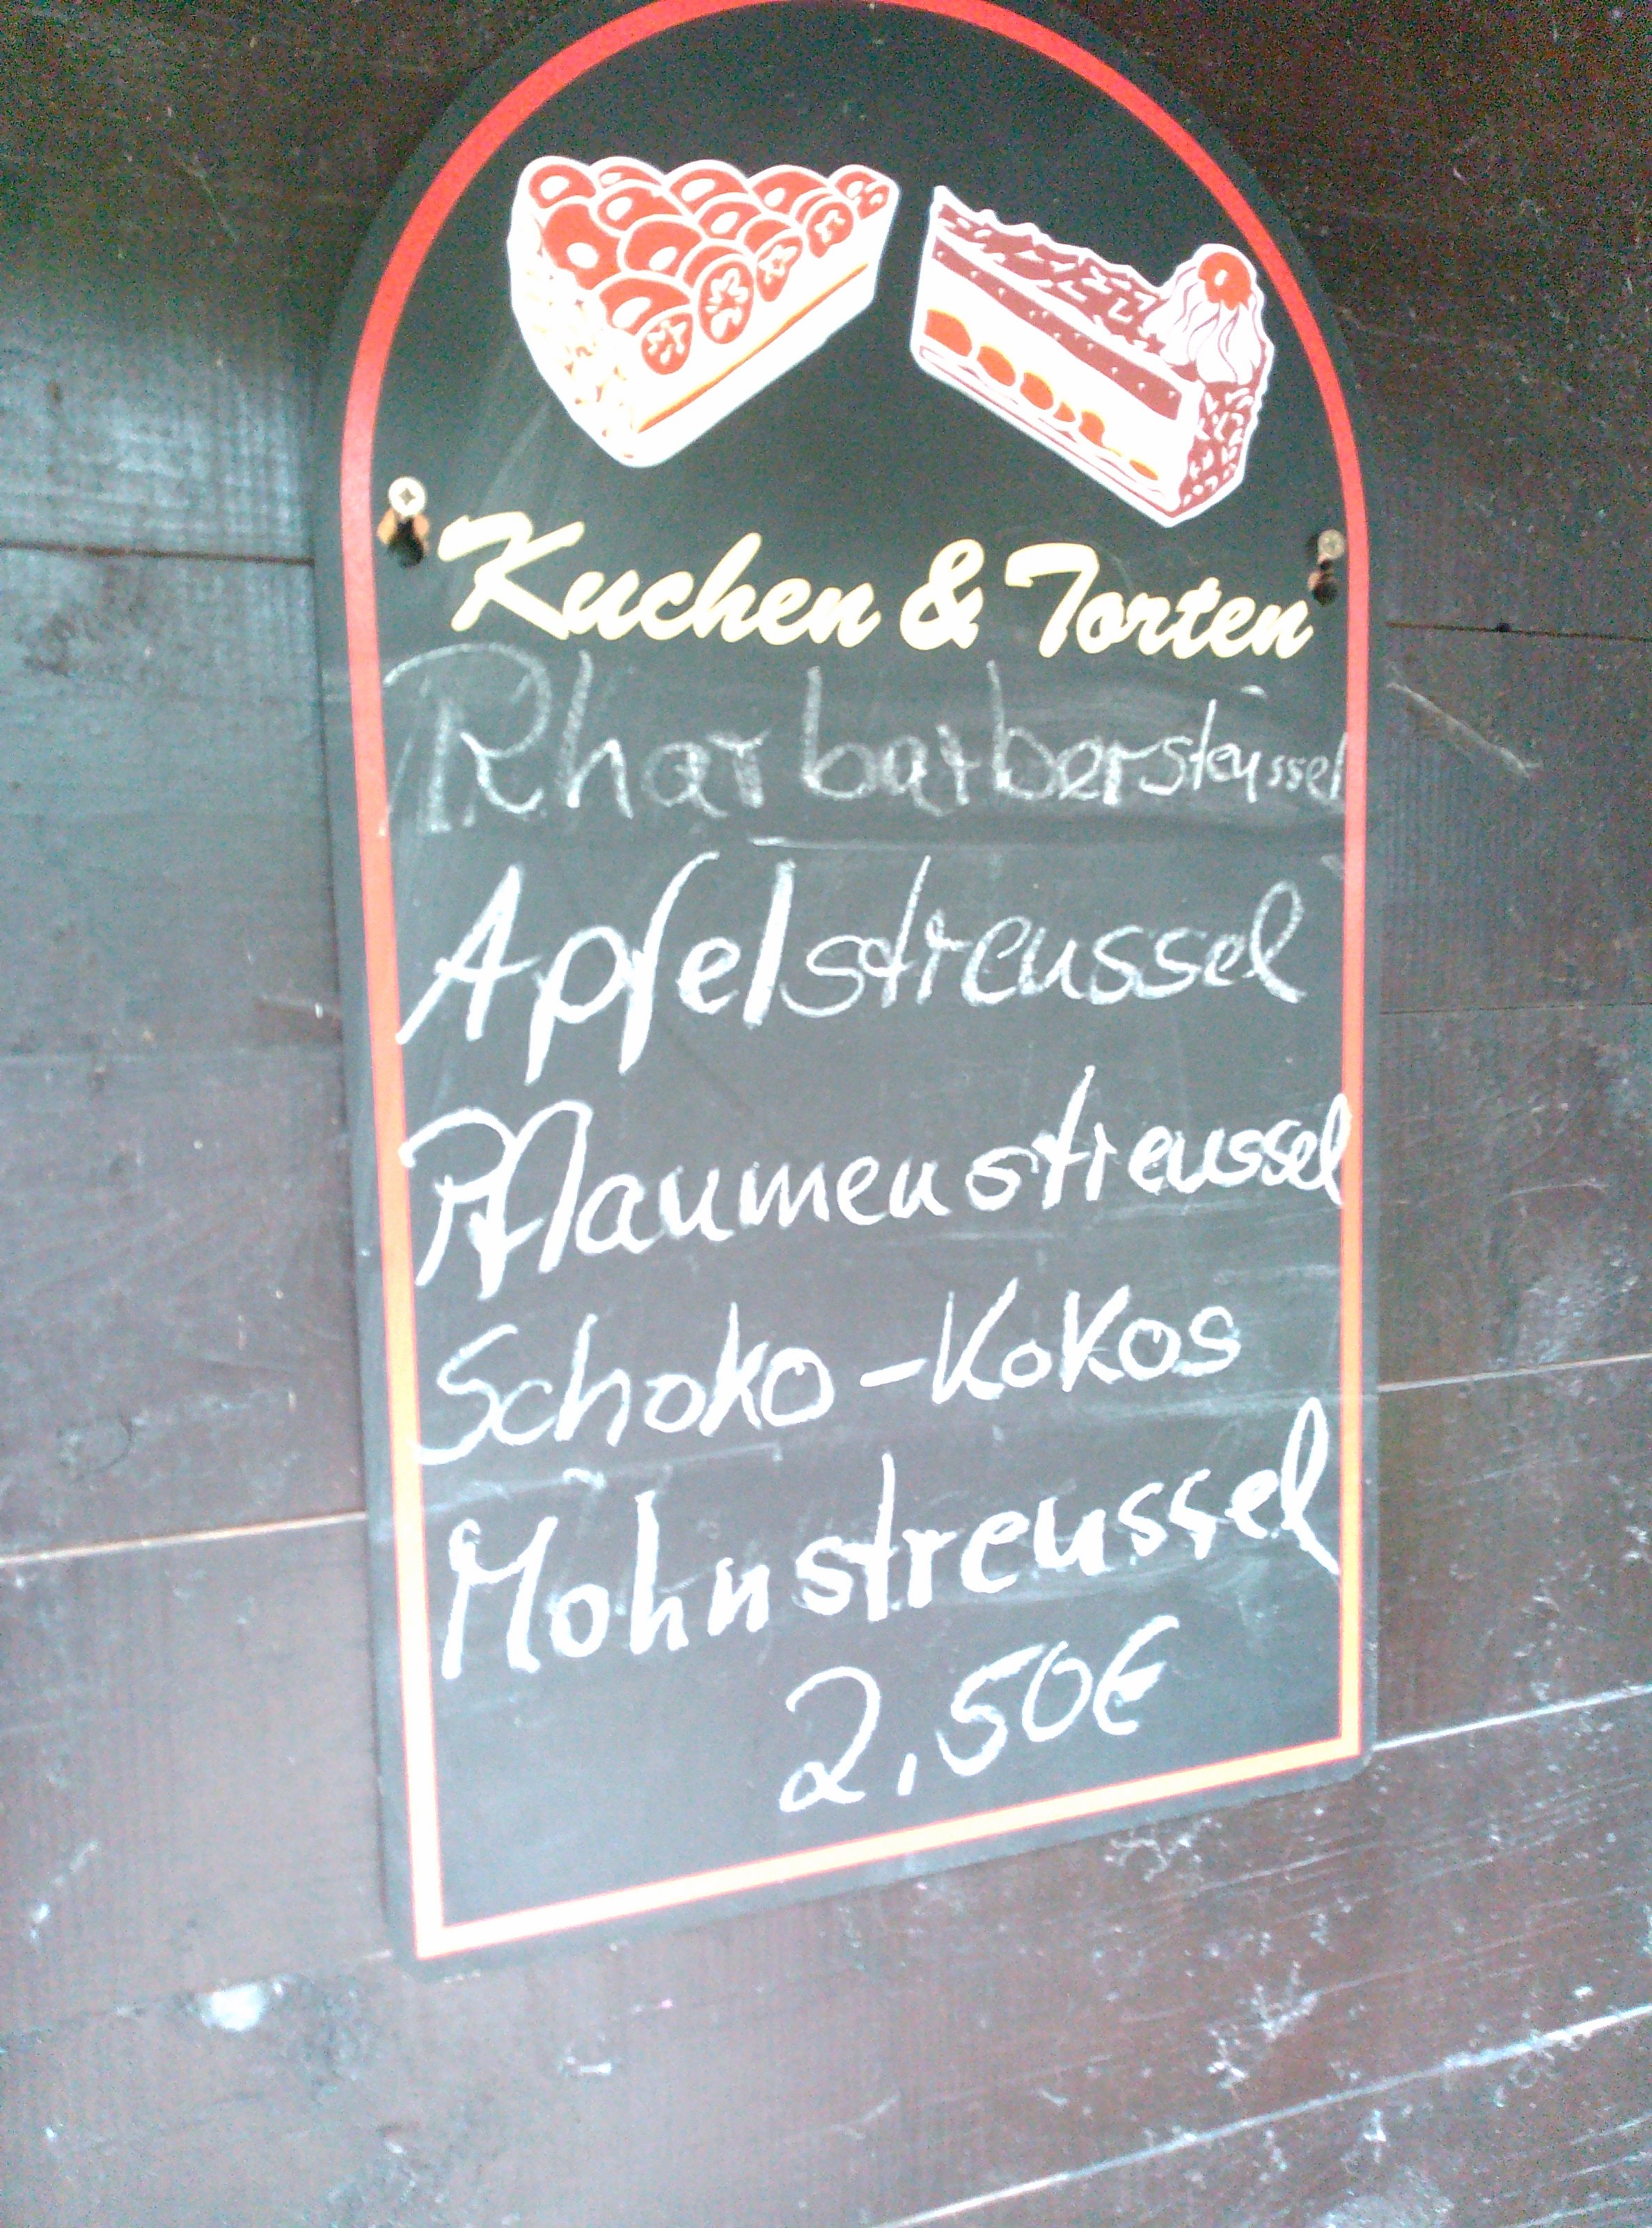 Kuchen & Torten
Rharbarbersteussel
Apfelstreussel
Pflaumenstreussel
Schoko-Kokos
Mohnstreussel
2,50€